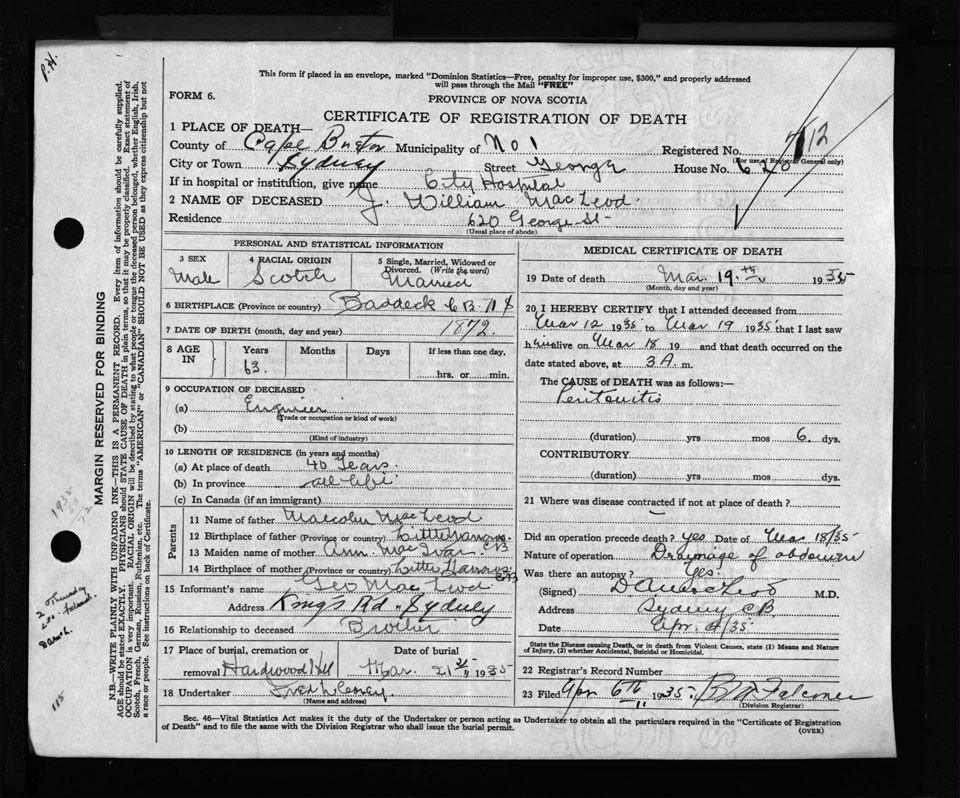 P.H.
This form if placed in an envelope, marked "Dominion Statistics—Free, penalty for improper use, $300," and properly addressed
will pass through the Mail "FREE"
FORM 6.
PROVINCE OF NOVA SCOTIA
CERTIFICATE OF REGISTRATION OF DEATH
1 PLACE OF DEATH—
County of Cape Breton Municipality of No 1 Registered No. 112
(For use of Registrar General only)
City or Town Sydney Street George House No. 620
If in hospital or institution, give name City Hospital
2 NAME OF DECEASED J. William MacLeod
Residence 620 George St
(Usual place of abode)
PERSONAL AND STATISTICAL INFORMATION
3 SEX 4 RACIAL ORIGIN 5 Single, Married, Widowed or Divorced. (Write the word)
Male Scotch Married
6 BIRTHPLACE (Province or country) Baddeck C B. N S
7 DATE OF BIRTH (month, day and year) 1872.
8 AGE IN Years Months Days If less than one day,
63. hrs. or min.
9 OCCUPATION OF DECEASED
(a) Engineer
(Trade or occupation or kind of work)
(b)
(Kind of industry)
10 LENGTH OF RESIDENCE (in years and months)
(a) At place of death 40 Years.
(b) In province all life
(c) In Canada (if an immigrant)
Parents
11 Name of father Malcolm MacLeod
12 Birthplace of father (Province or country) Little Narrows CB
13 Maiden name of mother Ann MacIvar
14 Birthplace of mother (Province or country) Little Narrows CB
15 Informant's name Geo MacLeod
Address Kings Rd Sydney
16 Relationship to deceased Brother
17 Place of burial, cremation or removal Hardwood Hill Date of burial Mar. 21st 1935
18 Undertaker
(Name and address)
MEDICAL CERTIFICATE OF DEATH
19 Date of death Mar 19th 1935
(Month, day and year)
20 I HEREBY CERTIFY that I attended deceased from
Mar 12 1935 to Mar 19 1935 that I last saw
him alive on Mar 18 19 and that death occurred on the
date stated above, at 3 A m.
The CAUSE of DEATH was as follows:—
Peritonitis
(duration) yrs mos 6 dys.
CONTRIBUTORY
(duration) yrs mos dys.
21 Where was disease contracted if not at place of death?
Did an operation precede death? yes Date of Mar 18/35
Nature of operation Drainage of abdomen
Was there an autopsy? Yes.
(Signed) M.D.
Address Sydney CB
Date Apr 4/35
State the Disease causing Death, or in death from Violent Causes, state (1) Means and Nature
of Injury, (2) whether Accidental, Suicidal or Homicidal.
22 Registrar's Record Number
23 Filed Apr 6th 1935 Falconer
(Division Registrar)
Sec. 46—Vital Statistics Act makes it the duty of the Undertaker or person acting as Undertaker to obtain all the particulars required in the "Certificate of Registration
of Death" and to file the same with the Division Registrar who shall issue the burial permit.
(OVER)
MARGIN RESERVED FOR BINDING
N.B.—WRITE PLAINLY WITH UNFADING INK—THIS IS A PERMANENT RECORD. Every item of information should be carefully supplied.
AGE should be stated EXACTLY. PHYSICIANS should STATE CAUSE OF DEATH in plain terms, so that it may be properly classified. Exact statement of
OCCUPATION is very important. RACIAL ORIGIN will be described by stating to what people or tongue the deceased person belonged, whether English, Irish,
Scotch, French, German, Russian, Ruthenian, etc. The terms "AMERICAN" or "CANADIAN" SHOULD NOT BE USED as they express citizenship but not
a race or people. See instructions on back of Certificate.
1935
63
72
115